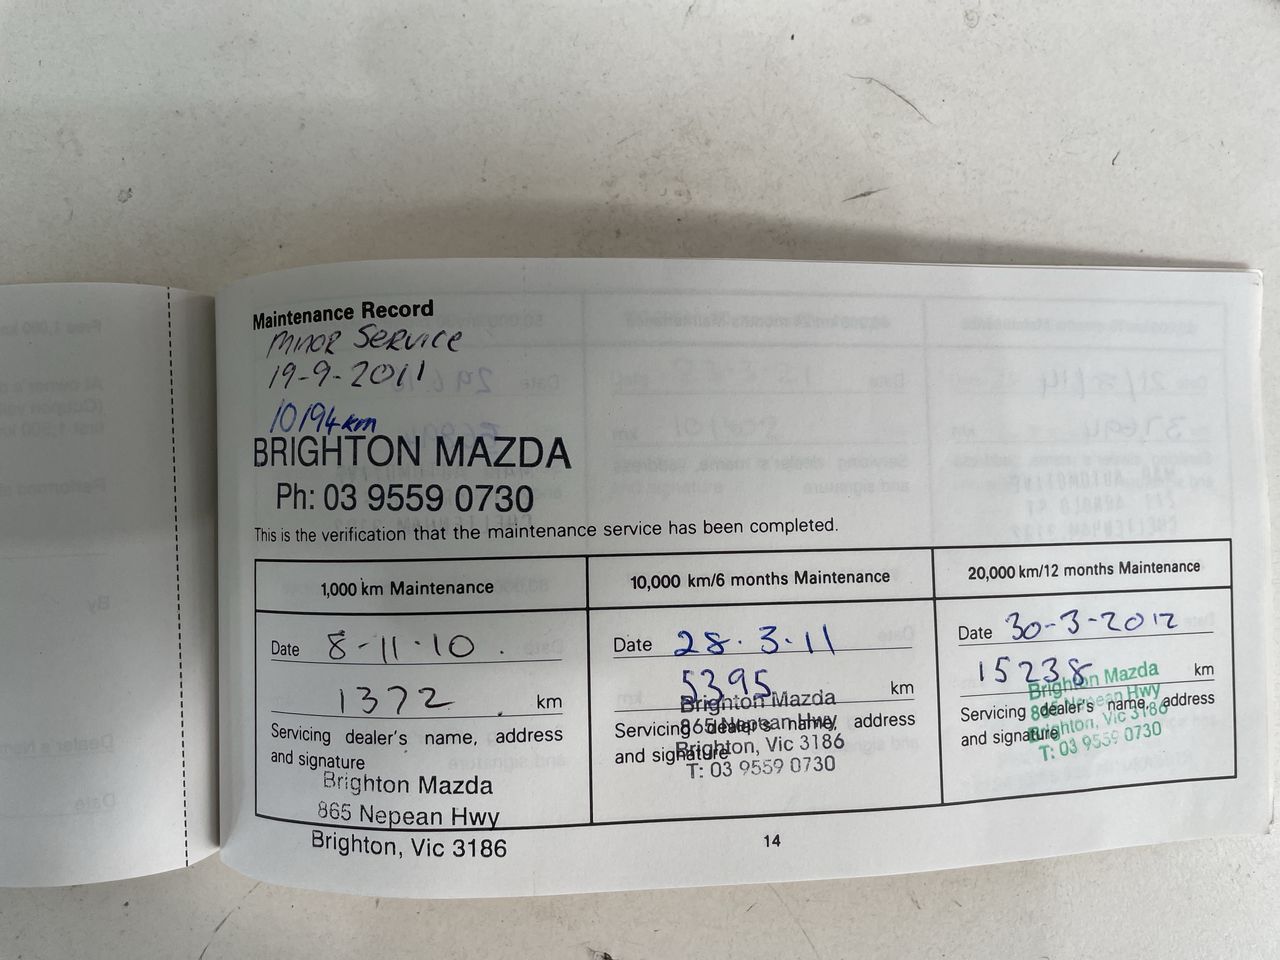 Maintenance Record
MINOR SERVICE
19-9-2011
10194km
BRIGHTON MAZDA
Ph: 03 9559 0730
This is the verification that the maintenance service has been completed.
1,000 km Maintenance
Date 8-11-10.
1372 km
Servicing dealer's name, address
and signature
Brighton Mazda
865 Nepean Hwy
Brighton, Vic 3186
10,000 km/6 months Maintenance
Date 28.3.11
5395 km
Brighton Mazda
Servicing dealer's name, address
865 Nepean Hwy
and signature
Brighton, Vic 3186
T: 03 9559 0730
20,000 km/12 months Maintenance
Date 30-3-2012
15238 km
Brighton Mazda
865 Nepean Hwy
Servicing dealer's name, address
Brighton, Vic 3186
and signature
T: 03 9559 0730
14